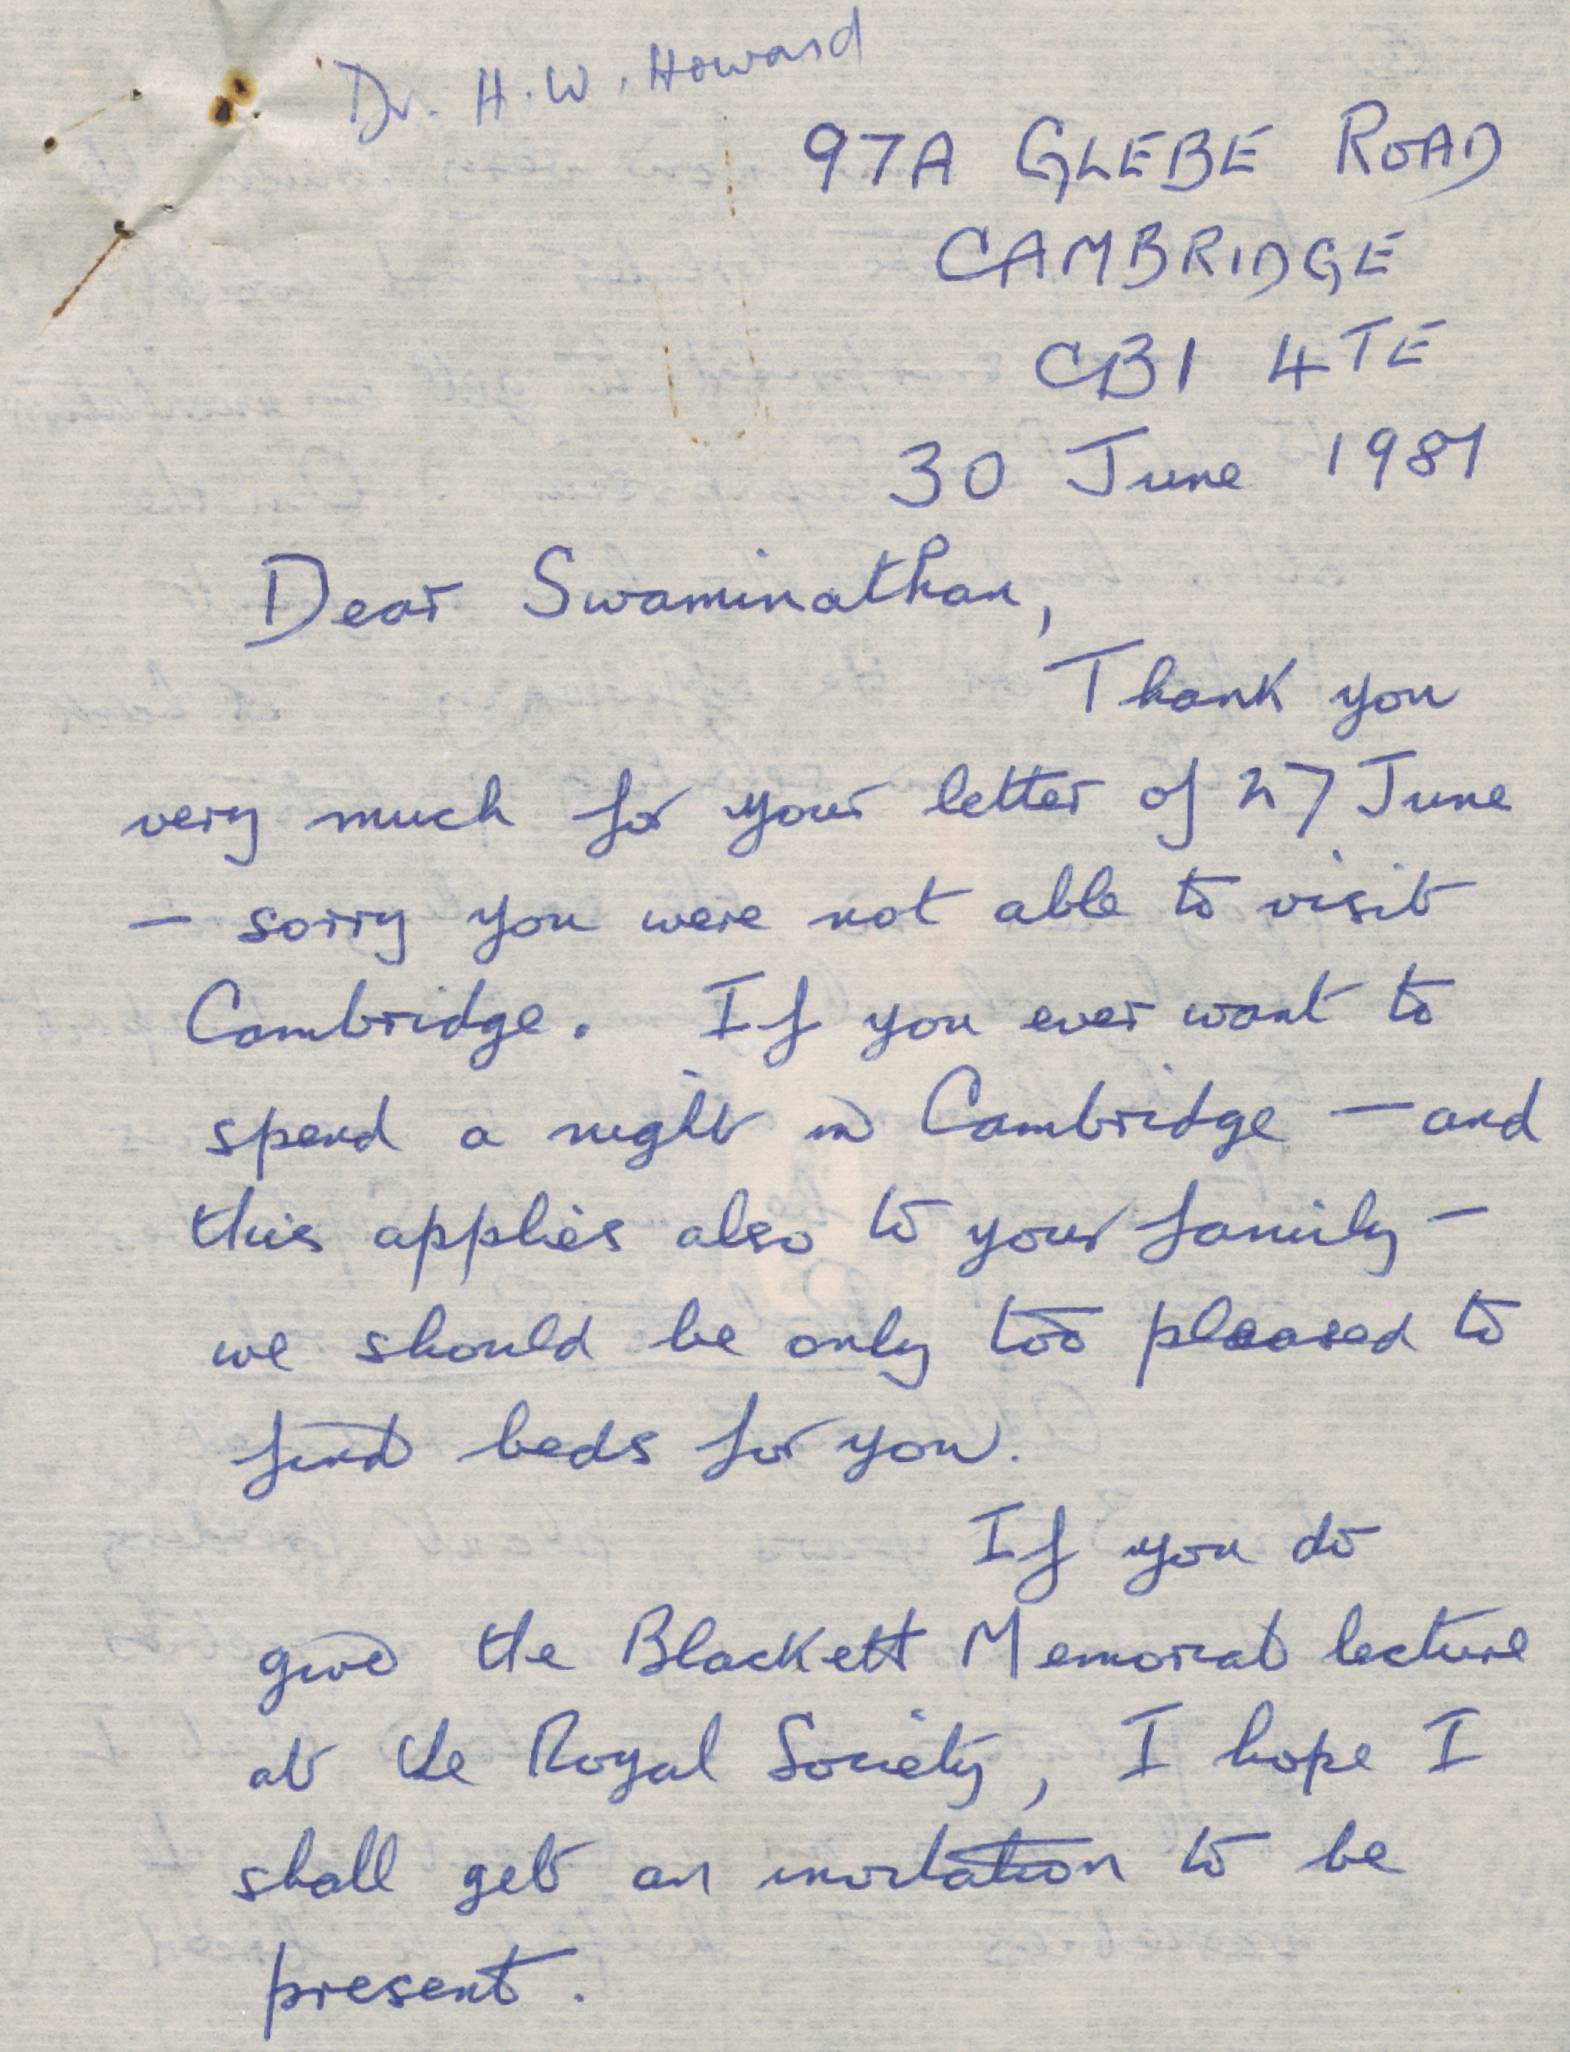 Dr. H. W. Howard
97A GLEBE ROAD
CAMBRIDGE
CB1 4TE
30 June 1981
Dear Swaminathan,
Thank you
very much for your letter of 27 June
— sorry you were not able to visit
Cambridge. If you ever want to
spend a night in Cambridge — and
this applies also to your family —
we should be only too pleased to
find beds for you.
If you do
give the Blackett Memorial lecture
at the Royal Society, I hope I
shall get an invitation to be
present.